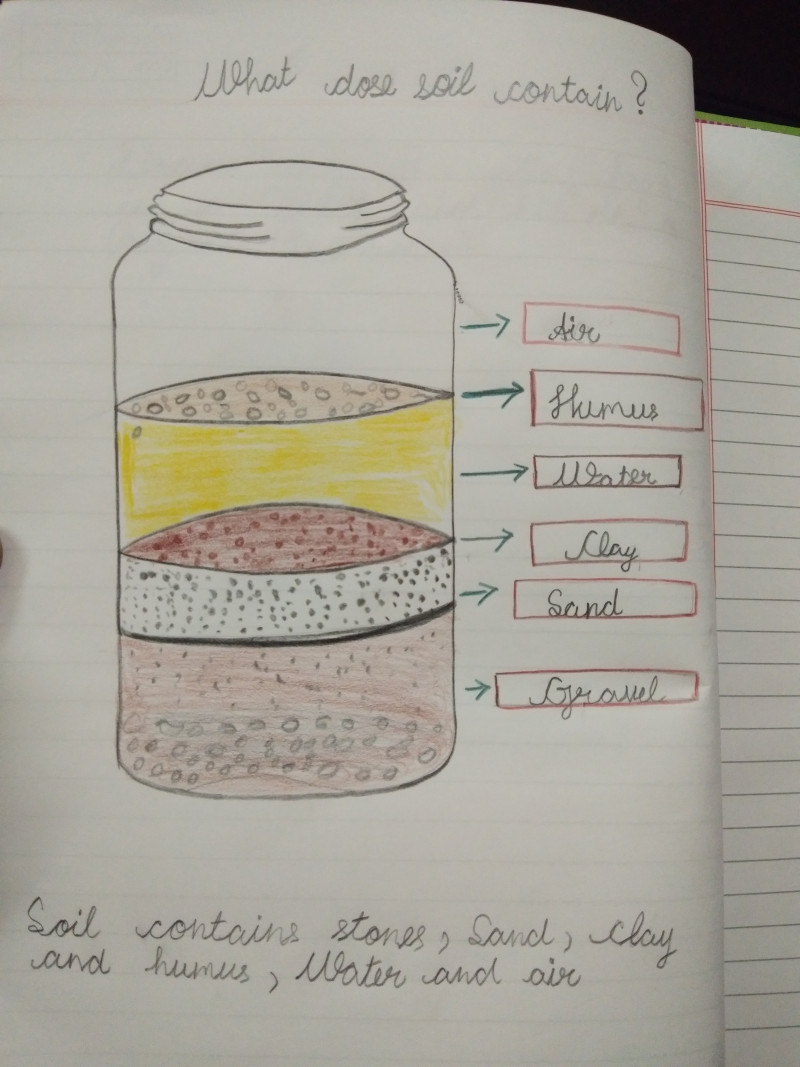 What dose soil contain?
Air
Humus
Water
Clay
Sand
Gravel
Soil contains stones, Sand, Clay
and humus, Water and air